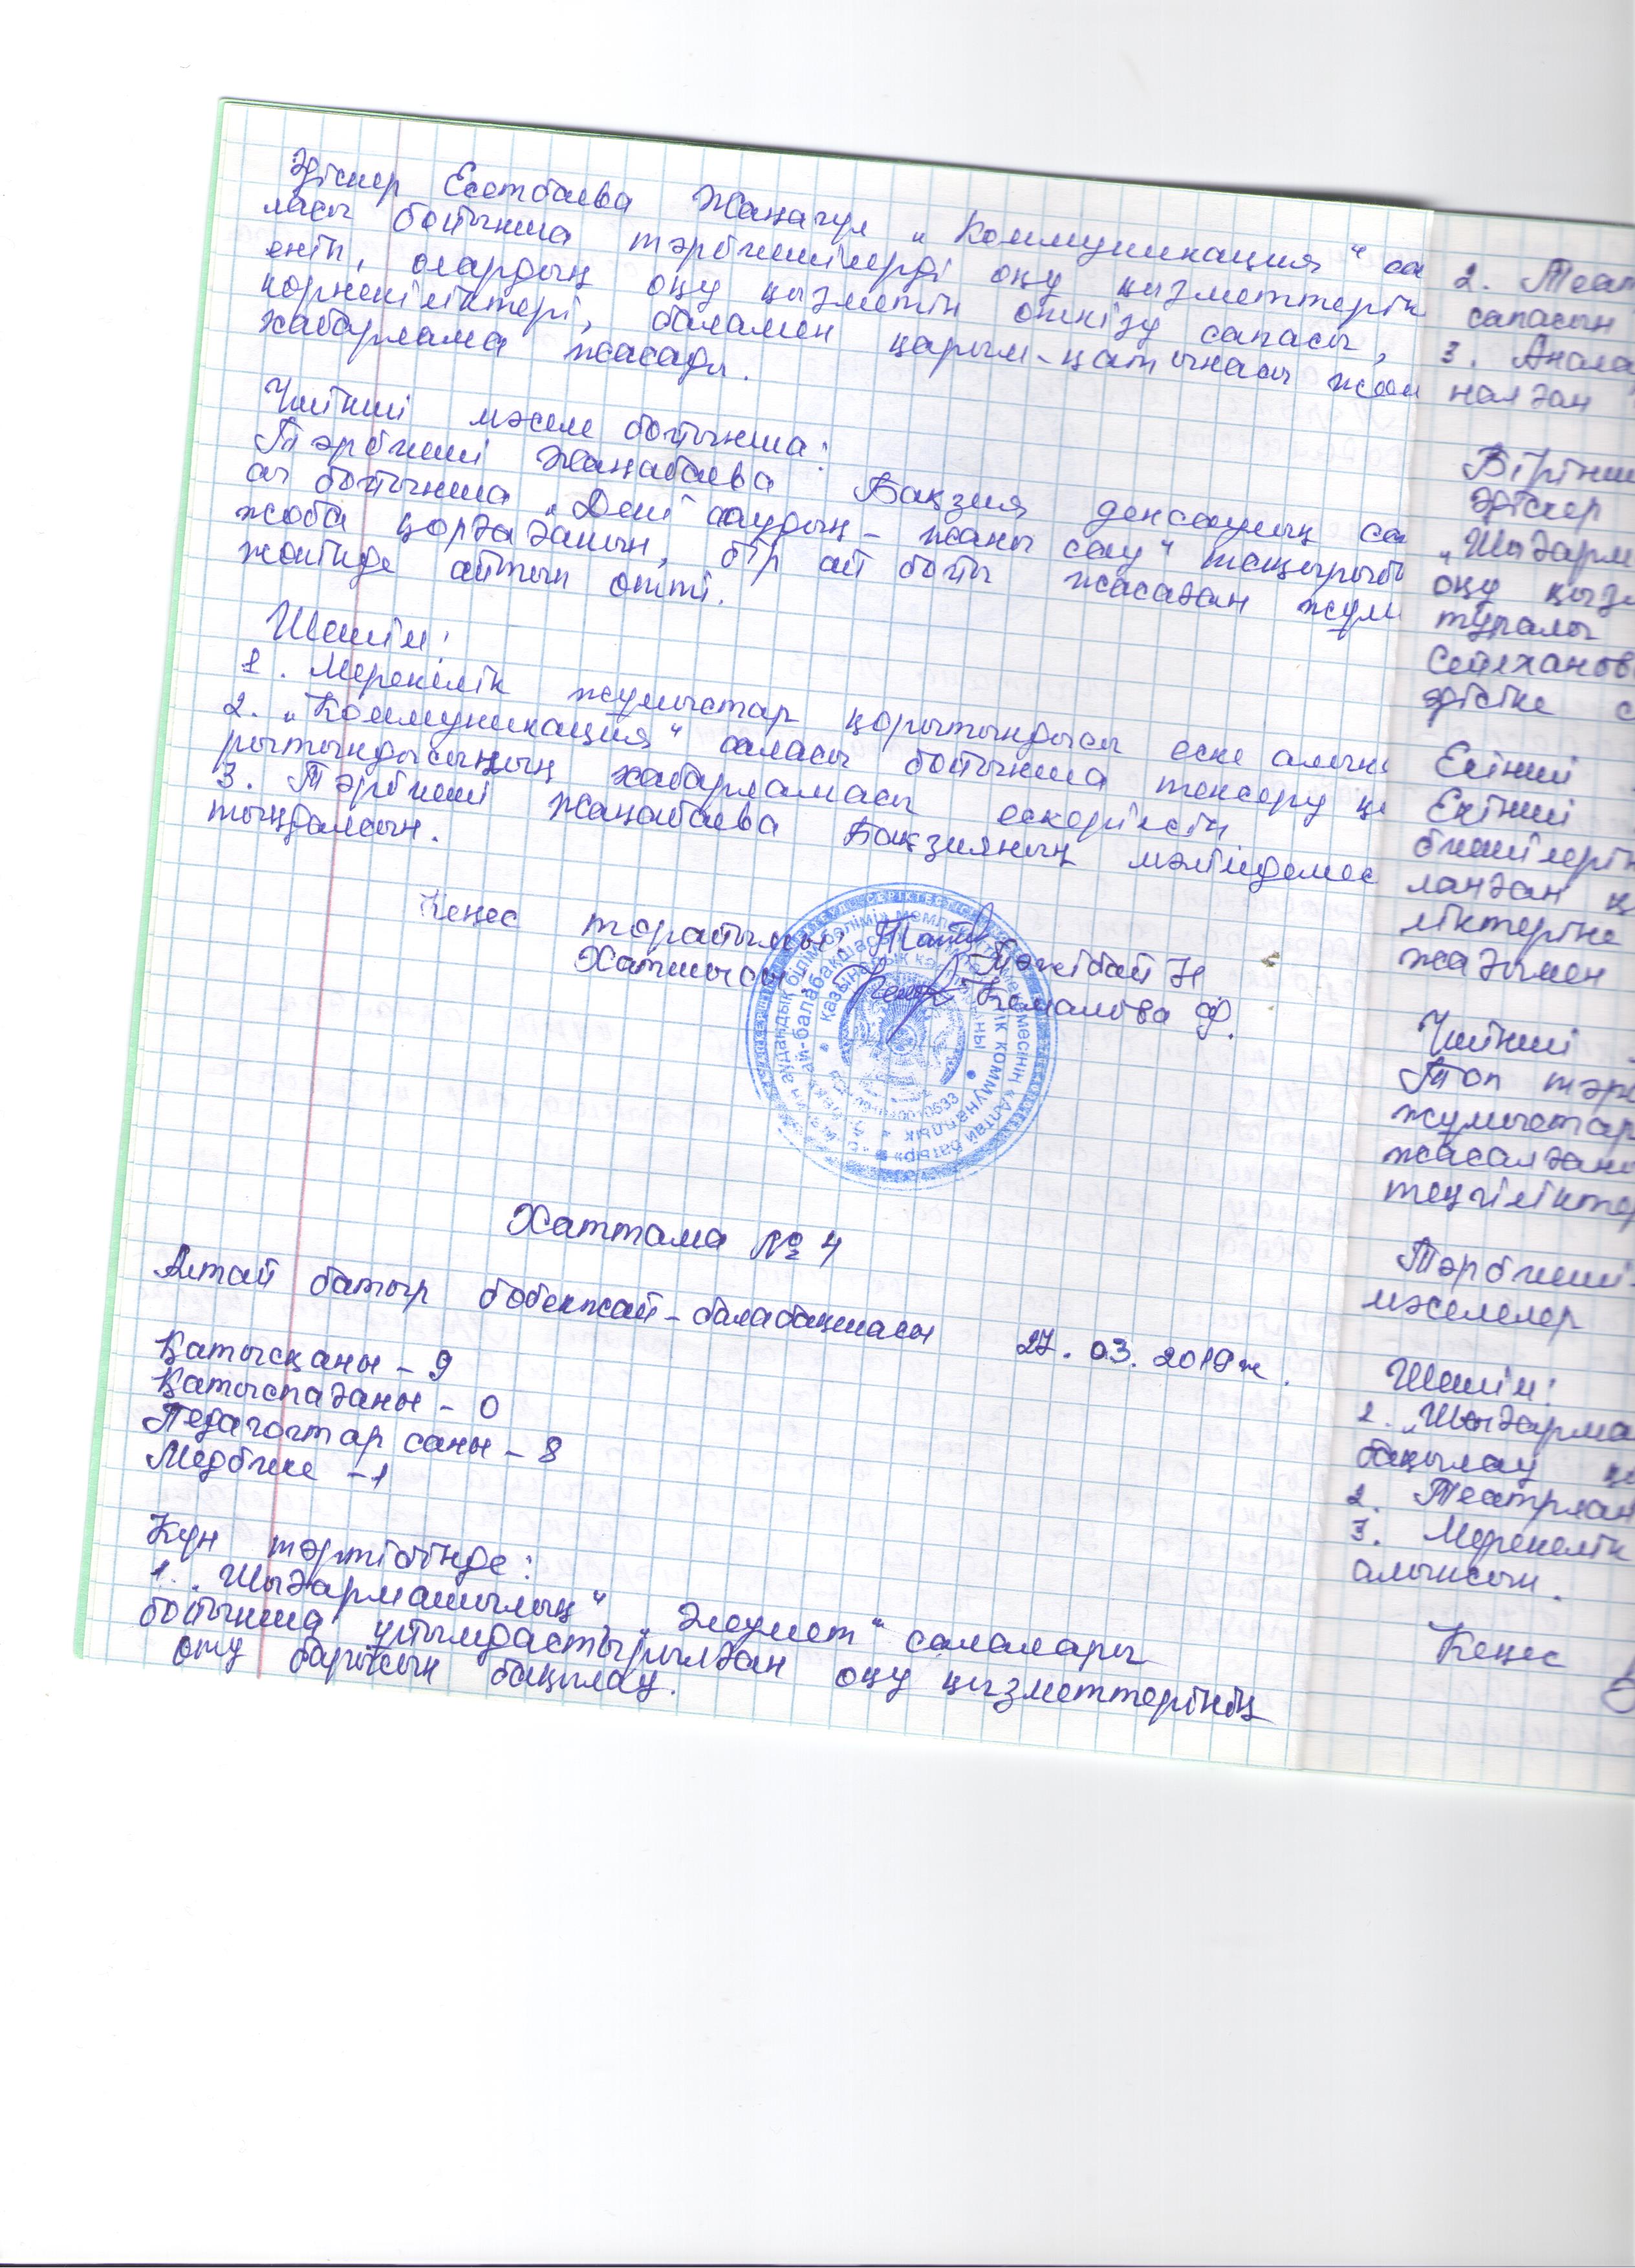 Әдіскер Есетбаева Жаңагүл „Коммуникация" са
ласы бойынша тәрбиешілерді оқу қызметтерін
еніп, олардың оқу қызметін өткізу сапасы,
көрнекіліктері, баламен қарым-қатынасы жөн
хабарлама жасады.
Үшінші мәселе бойынша:
Тәрбиеші Жаңабаева Бақзия денсаулық са
сы бойынша „Дені саудың - жаны сау" тақырыбы
жоба қорғағанын, бір ай бойы жасаған жұм
жөнінде айтып өтті.
Шешім:
1. Мерекелік жұмыстар қорытындысы еске алын
2. „Коммуникация" саласы бойынша тексеру қо
рытындысының хабарламасы ескерілсін
3. Тәрбиеші Жаңабаева Бақзияның мәлімдемес
тыңдалсын.
Кеңес төрайымы: Тәжібай Н
Хатшысы Кемалова Ф.
Хаттама № 4
Алтай батыр бөбекжай-балабақшасы 27.03.2019ж.
Қатысқаны - 9
Қатыспағаны - 0
Педагогтар саны - 8
Медбике - 1
Күн тәртібінде:
1. „Шығармашылық" „Әлеумет" салалары
бойынша ұйымдастырылған оқу қызметтерінің
өту барысын бақылау.
2. Теат
сапасын
3. Анала
налған
Бірінш
Әдіскер
„Шығарм
оқу қызм
туралы
Сейлханов
әдісіне с
Екінші
Екінші
биешілерін
ланған қ
ліктеріне
жағымен
Үшінші
Топ тәрб
жұмыстар
жасалғаны
теңгілікте
Тәрбиеші
мәселелер
Шешім:
1. „Шығарма
бақылау қо
2. Театрлан
3. Мерекелік
алынсын.
Кеңес